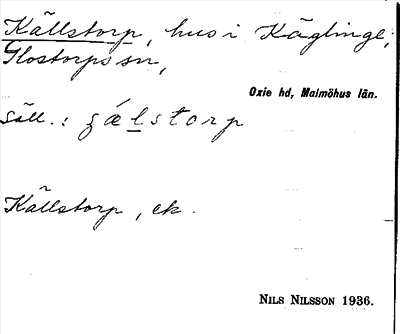 Källstorp, hus i Käglinge,
Glostorps sn,
Oxie hd, Malmöhus län.
säll.: gælstorp
Källstorp, ek.
NILS NILSSON 1936.